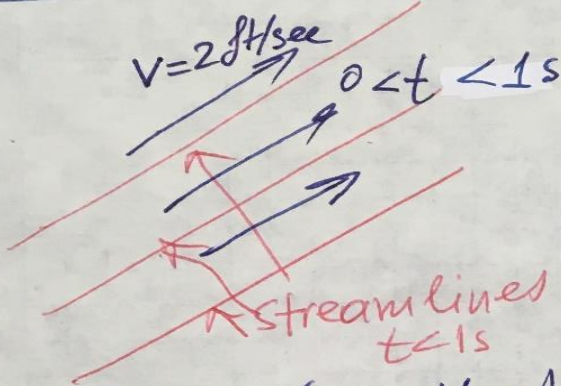 V=2ft/sec
0<t<1s
streamlines
t<1s